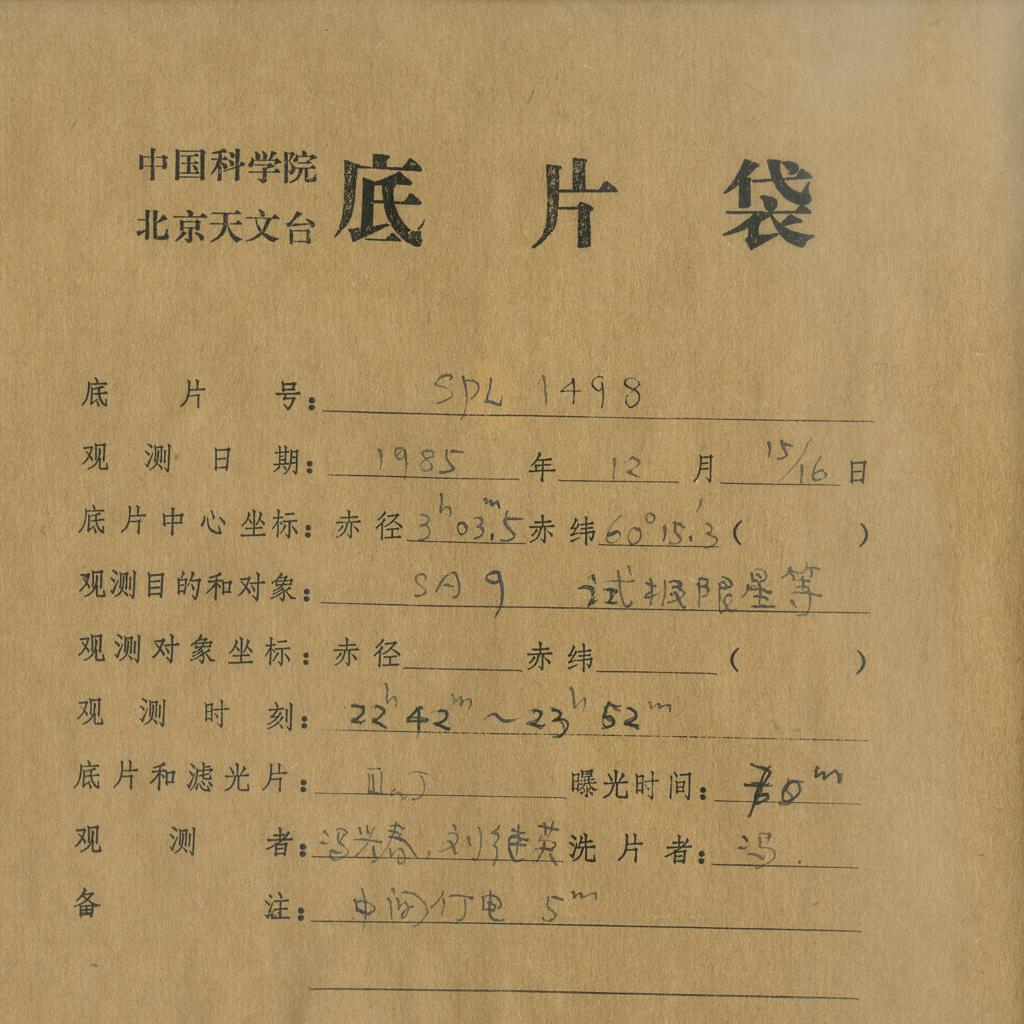 中国科学院
北京天文台 底片袋
底片号: SPL 1498
观测日期: 1985 年 12 月 15/16 日
底片中心坐标: 赤径 3h03m.5 赤纬 60°15′.3 ( )
观测目的和对象: SA 9 试极限星等
观测对象坐标: 赤径 赤纬 ( )
观测时刻: 22h 42m ~ 23h 52m
底片和滤光片: IIaJ 曝光时间: 70m
观测者: 冯兴春, 刘继英 洗片者: 冯.
备注: 中间仃电 5m